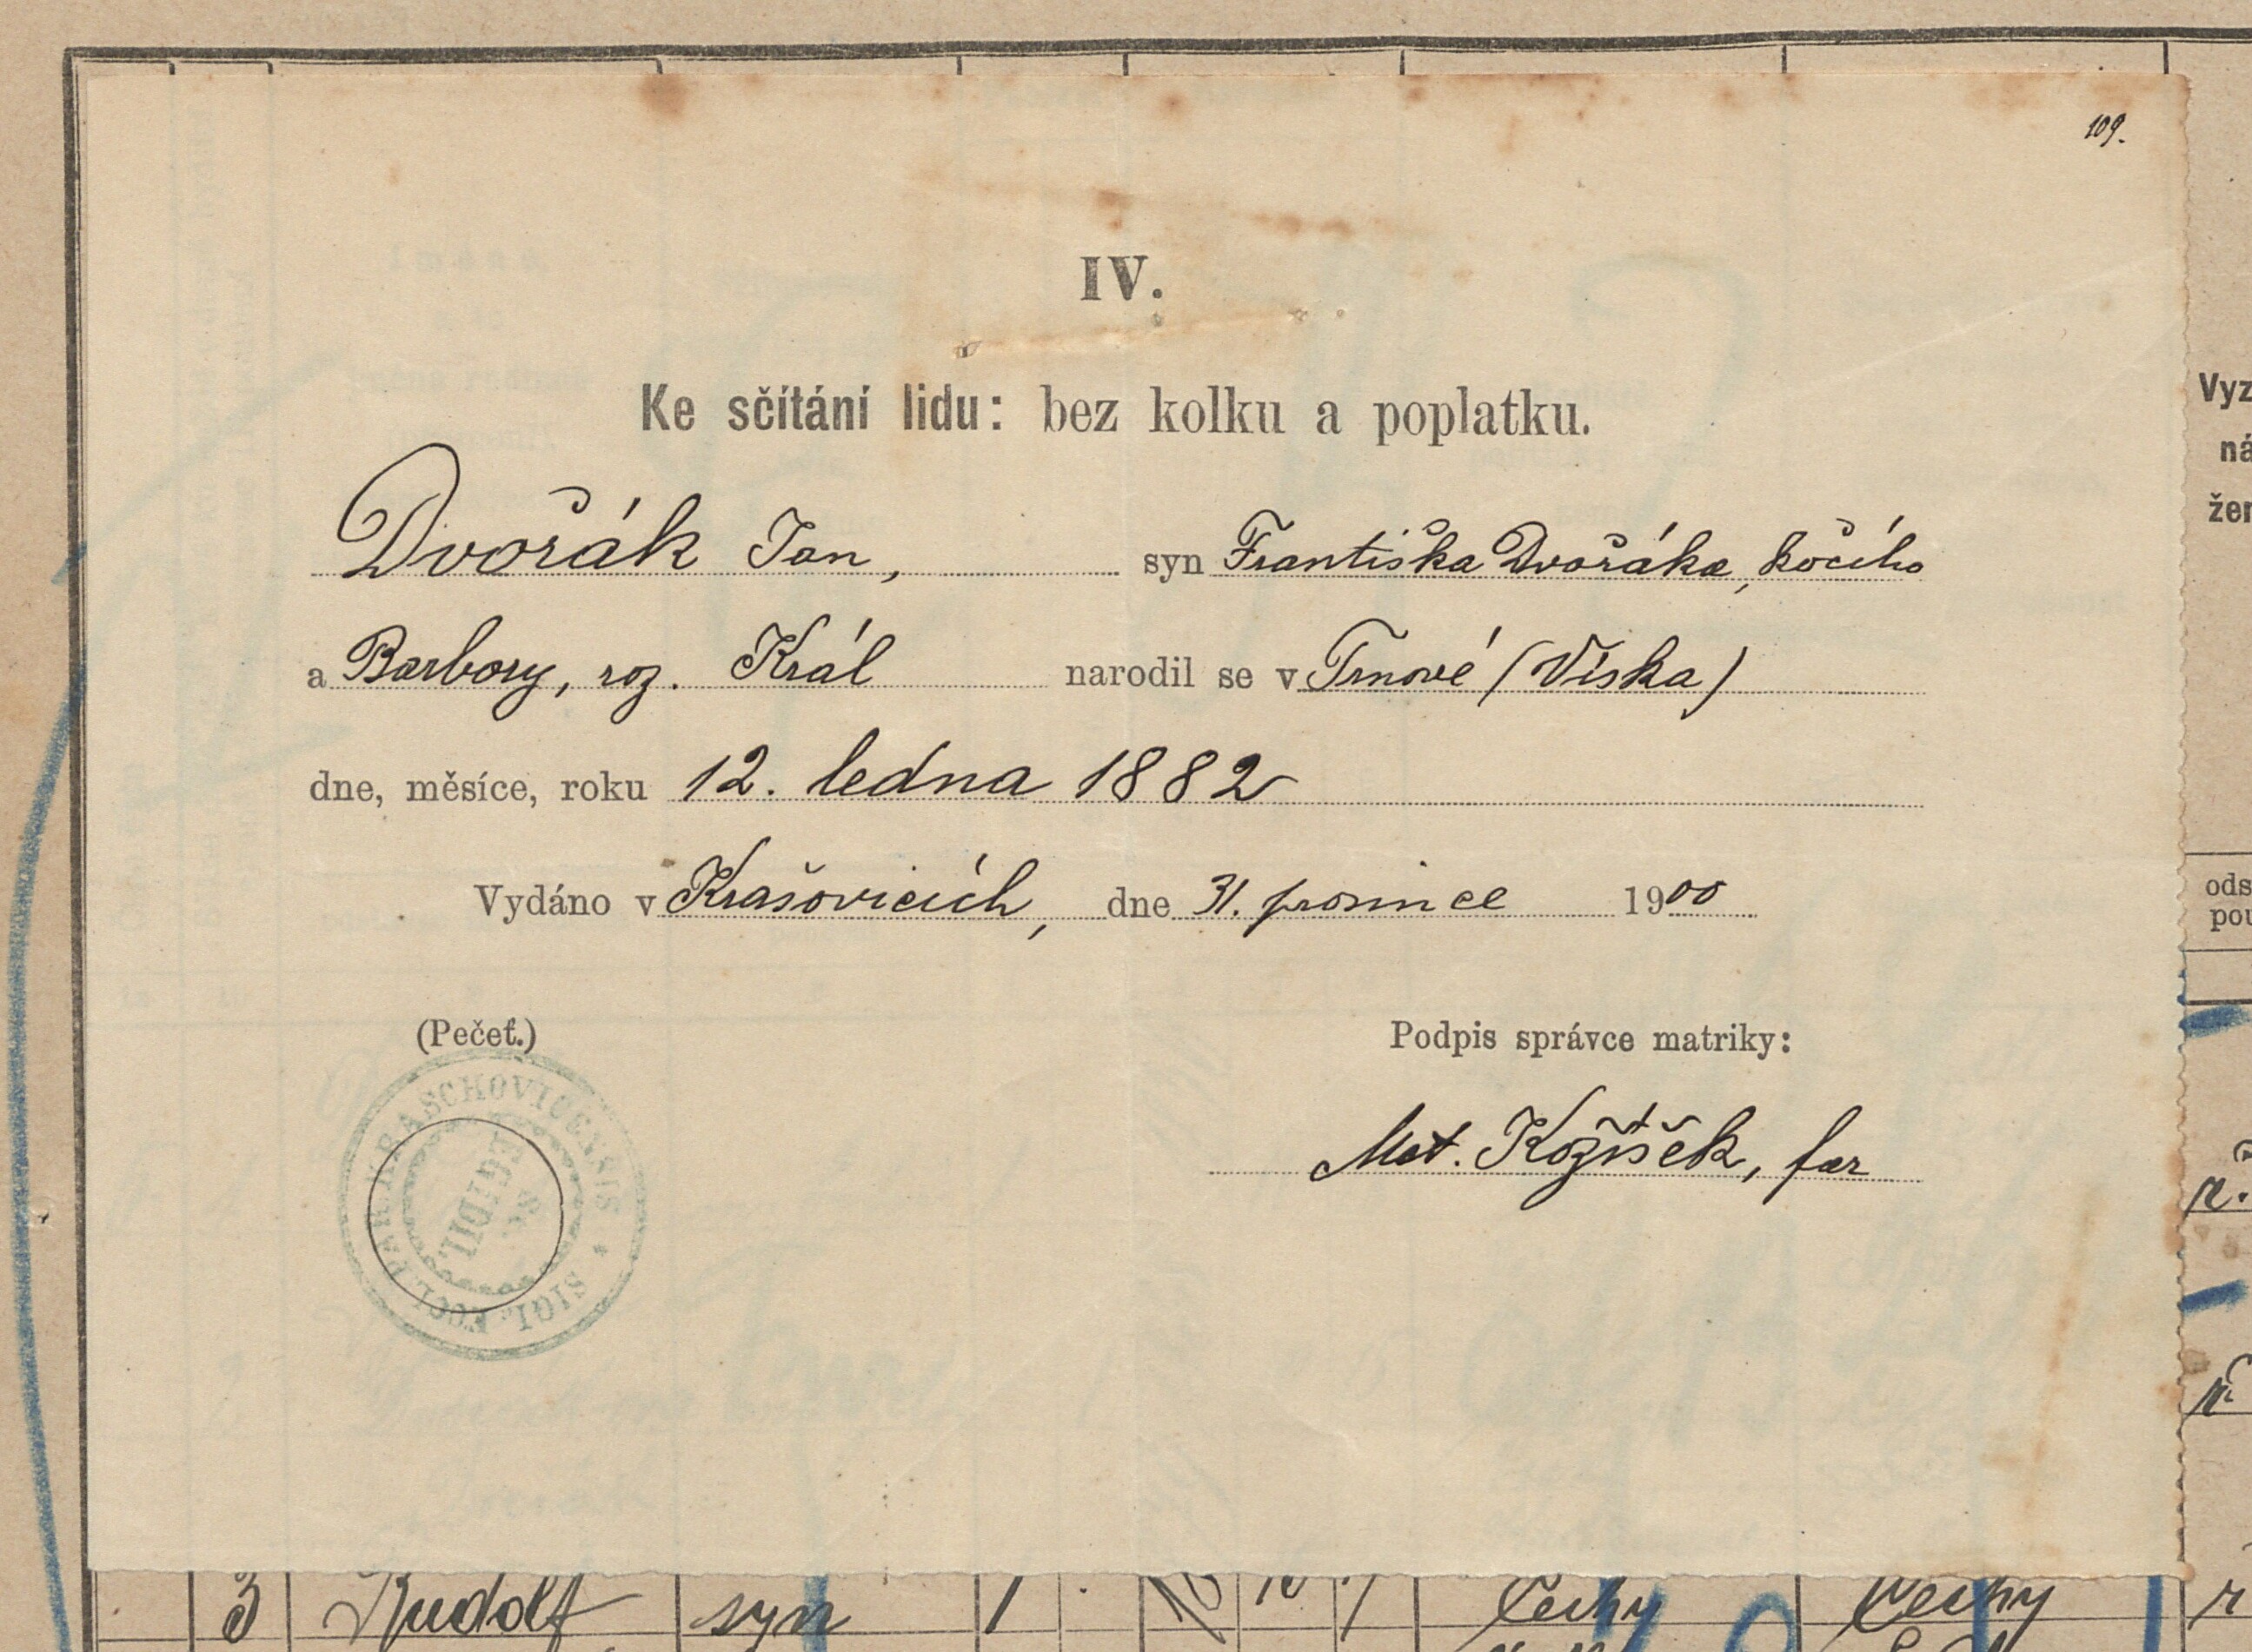 109.
IV.
Ke sčítání lidu: bez kolku a poplatku.
Dvořák Jan, syn Františka Dvořáka, kočího
a Barbory, roz. Král narodil se v Trnové (Víska)
dne, měsíce, roku 12. ledna 1882
Vydáno v Krašovicích, dne 31. prosince 1900
(Pečeť.) Podpis správce matriky:
Mat. Kožíšek, far
SIGI. ECCL. PAR. KRASCHOVICENSIS *
S.
EGIDII.
Vyz
ná
žen
ods
pou
3 Rudolf syn 1 Čechy Čechy